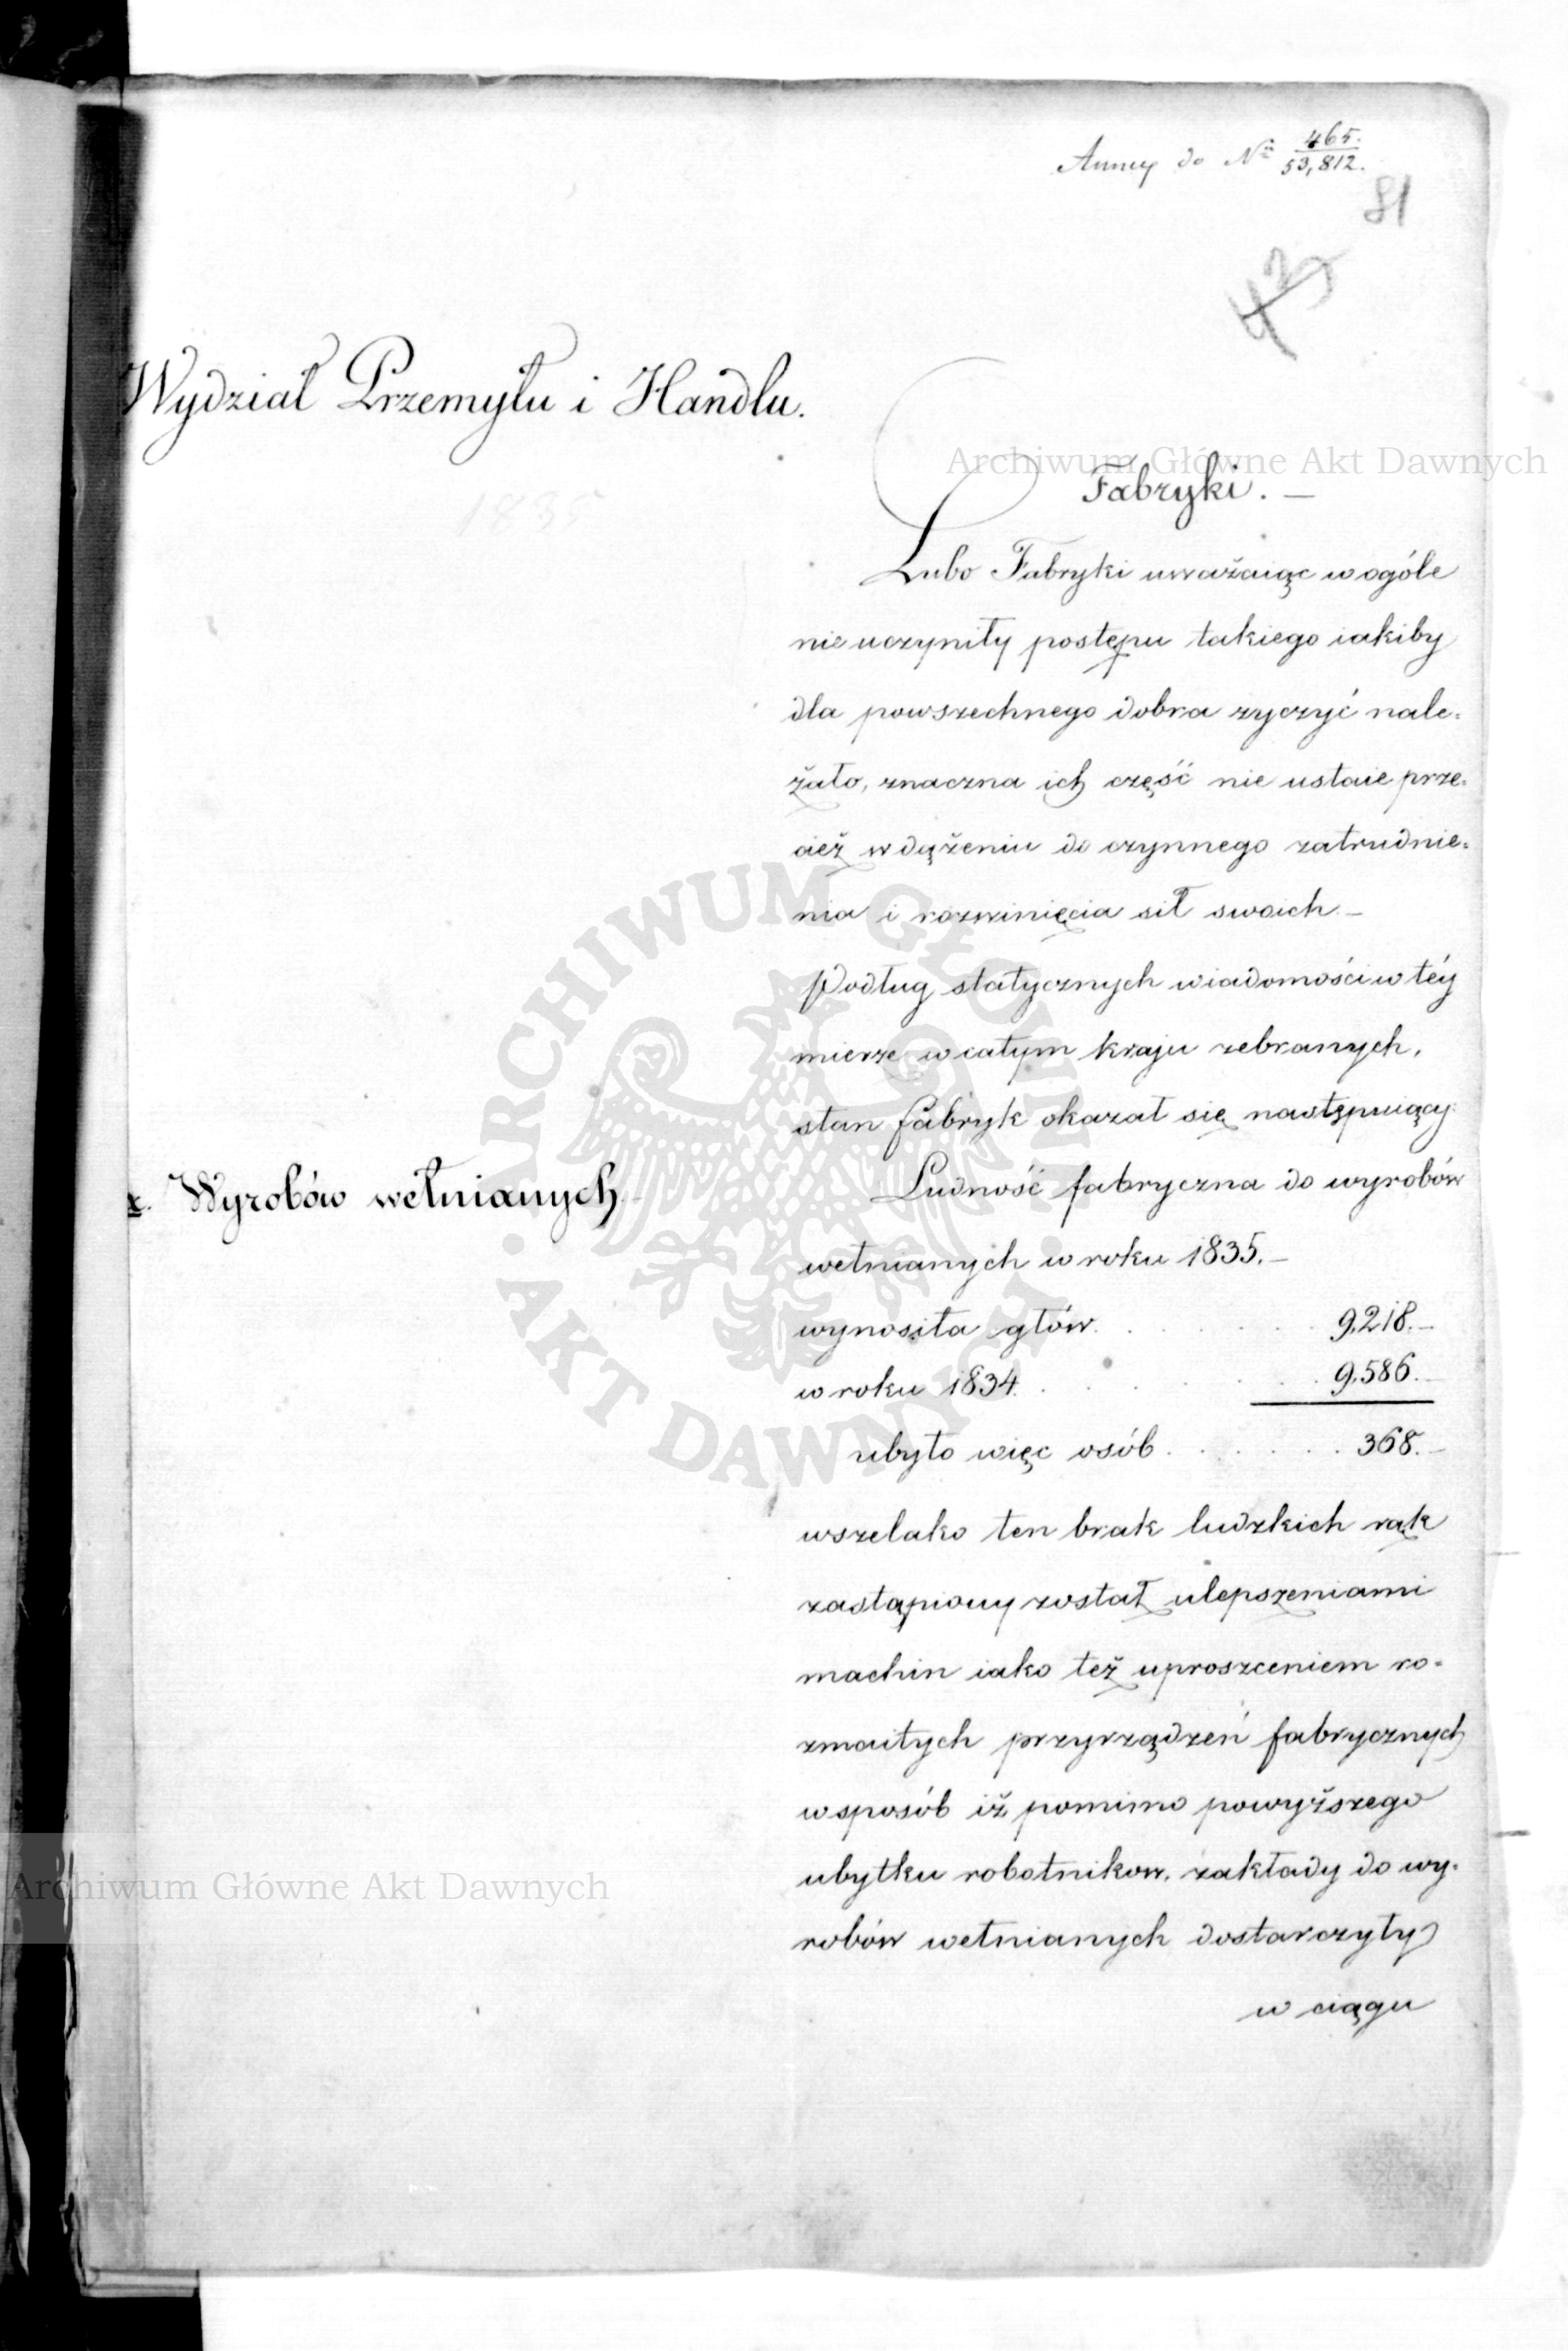 Annex do Nº 465./53,812.
81
Wydział Przemysłu i Handlu.
Archiwum Główne Akt Dawnych
Fabryki. —
1835
Lubo Fabryki uważaiąc w ogóle
nie uczyniły postępu takiego iakiby
dla powszechnego dobra zyczyć nale=
żało, znaczna ich część nie ustaie prze=
cież w dążeniu do czynnego zatrudnie=
nia i rozwinięcia sił swoich. —
Podług statycznych wiadomości w téy
mierze w całym kraju zebranych,
stan fabryk okazał się następuiący:
Wyrobów wełnianych. —
Ludność fabryczna do wyrobów
wełnianych w roku 1835. —
wynosiła głów . . . . . 9,218. —
w roku 1834. . . . . . . 9,586. —
ubyło więc osób . . . . . . 368. —
wszelako ten brak ludzkich rąk
zastąpiony został ulepszeniami
machin iako też uproszceniem ro=
zmaitych przyrządzeń fabrycznych
w sposób iż pomimo powyższego
ubytku robotnikow, zakłady do wy=
robów wełnianych dostarczyły
w ciągu
ARCHIWUM GŁÓWNE
AKT DAWNYCH
Archiwum Główne Akt Dawnych